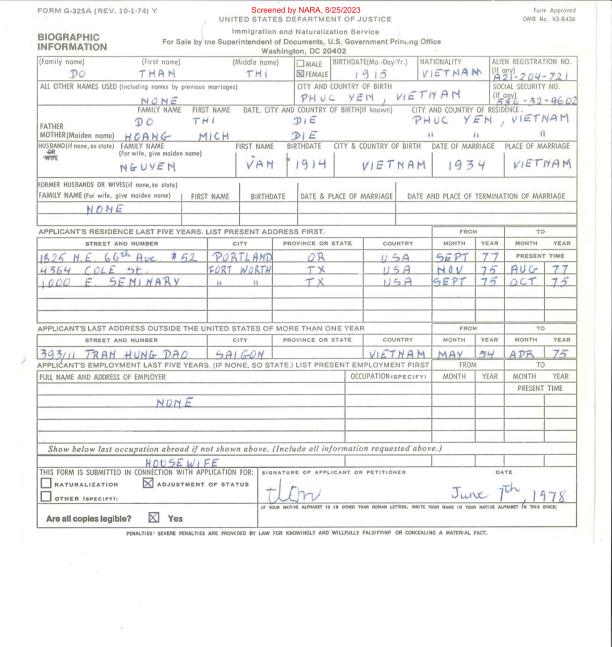 FORM G-325A (REV. 10-1-74) Y
Screened by NARA, 8/25/2023
Form Approved
OMB No. 43-R436
UNITED STATES DEPARTMENT OF JUSTICE
Immigration and Naturalization Service
BIOGRAPHIC INFORMATION
For Sale by the Superintendent of Documents, U.S. Government Printing Office
Washington, DC 20402
(Family name) (First name) (Middle name) MALE BIRTHDATE(Mo.-Day-Yr.) NATIONALITY ALIEN REGISTRATION NO.
DO THAN THI ☒ FEMALE 1915 VIETNAM (If any) A21-204-721
ALL OTHER NAMES USED (Including names by previous marriages) CITY AND COUNTRY OF BIRTH SOCIAL SECURITY NO.
NONE PHUC YEN, VIETNAM (If any) 586-32-9602
FAMILY NAME FIRST NAME DATE, CITY AND COUNTRY OF BIRTH(If known) CITY AND COUNTRY OF RESIDENCE.
FATHER DO THI DIE PHUC YEN, VIETNAM
MOTHER(Maiden name) HOANG MICH DIE " "
HUSBAND(If none, so state) OR WIFE FAMILY NAME (For wife, give maiden name) FIRST NAME BIRTHDATE CITY & COUNTRY OF BIRTH DATE OF MARRIAGE PLACE OF MARRIAGE
NGUYEN VAN 1914 VIETNAM 1934 VIETNAM
FORMER HUSBANDS OR WIVES(if none,so state)
FAMILY NAME (For wife, give maiden name) FIRST NAME BIRTHDATE DATE & PLACE OF MARRIAGE DATE AND PLACE OF TERMINATION OF MARRIAGE
NONE
APPLICANT'S RESIDENCE LAST FIVE YEARS. LIST PRESENT ADDRESS FIRST. FROM TO
STREET AND NUMBER CITY PROVINCE OR STATE COUNTRY MONTH YEAR MONTH YEAR
1825 N.E. 66th Ave. #52 PORTLAND OR USA SEPT 77 PRESENT TIME
4364 COLE St. FORT WORTH TX USA NOV 75 AUG 77
1000 E. SEMINARY " " TX USA SEPT 75 OCT 75
APPLICANT'S LAST ADDRESS OUTSIDE THE UNITED STATES OF MORE THAN ONE YEAR FROM TO
STREET AND NUMBER CITY PROVINCE OR STATE COUNTRY MONTH YEAR MONTH YEAR
393/11 TRAN HUNG DAO SAIGON VIETNAM MAY 54 APR 75
APPLICANT'S EMPLOYMENT LAST FIVE YEARS. (IF NONE, SO STATE.) LIST PRESENT EMPLOYMENT FIRST FROM TO
FULL NAME AND ADDRESS OF EMPLOYER OCCUPATION(SPECIFY) MONTH YEAR MONTH YEAR
PRESENT TIME
NONE
Show below last occupation abroad if not shown above. (Include all information requested above.)
HOUSEWIFE
THIS FORM IS SUBMITTED IN CONNECTION WITH APPLICATION FOR: SIGNATURE OF APPLICANT OR PETITIONER DATE
NATURALIZATION ☒ ADJUSTMENT OF STATUS
OTHER (SPECIFY): June 7th, 1978
(IF YOUR NATIVE ALPHABET IS IN OTHER THAN ROMAN LETTERS, WRITE YOUR NAME IN YOUR NATIVE ALPHABET IN THIS SPACE)
Are all copies legible? ☒ Yes
PENALTIES: SEVERE PENALTIES ARE PROVIDED BY LAW FOR KNOWINGLY AND WILLFULLY FALSIFYING OR CONCEALING A MATERIAL FACT.